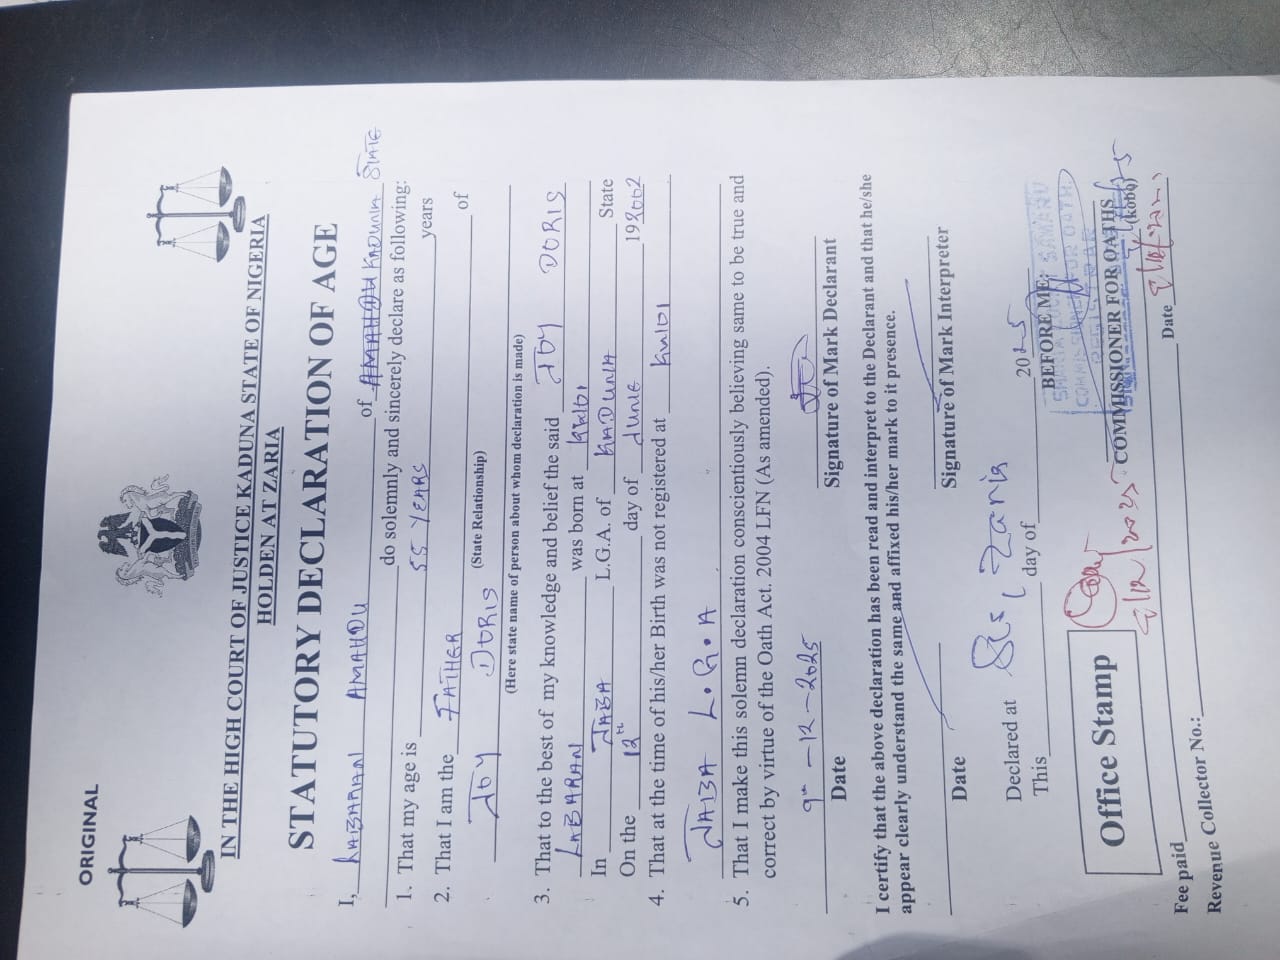 ORIGINAL
IN THE HIGH COURT OF JUSTICE KADUNA STATE OF NIGERIA
HOLDEN AT ZARIA
STATUTORY DECLARATION OF AGE
I, LABARAN AMAHDU of KADUNA STATE
do solemnly and sincerely declare as following:
1. That my age is 55 YEARS years
2. That I am the FATHER of
JOY DORIS (State Relationship)
(Here state name of person about whom declaration is made)
3. That to the best of my knowledge and belief the said JOY DORIS
LABARAN was born at KWIOI
In JABA L.G.A. of KADUNA State
On the 12th day of JUNE 192002
4. That at the time of his/her Birth was not registered at KWIOI
JABA L.G.A
5. That I make this solemn declaration conscientiously believing same to be true and
correct by virtue of the Oath Act. 2004 LFN (As amended).
9th-12-2025
Date Signature of Mark Declarant
I certify that the above declaration has been read and interpret to the Declarant and that he/she
appear clearly understand the same and affixed his/her mark to it presence.
Date Signature of Mark Interpreter
Declared at Zaria
This day of 2025
BEFORE ME:
COMMISSIONER FOR OATH
REGISTRAR
Office Stamp
COMMISSIONER FOR OATHS
Fee paid (kobo)
Revenue Collector No.: Date